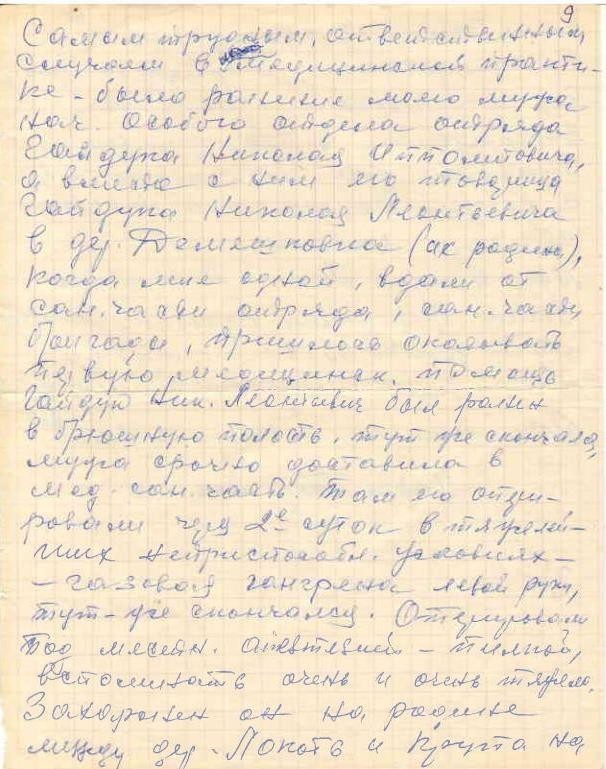 9
Самым трудным, ответственным
случаем в медицинской практи-
ке - было ранение моего мужа
нач. Особого отдела отряда
Гайдука Николая Ипполитовича,
а вместе с ним его
Гайдука Николая Леонтьевича
в дер. Демешковка (их родина),
когда мне одной, вдали от
сан.части отряда, сан.части
бригады, пришлось оказывать
первую медицинск. помощь
Гайдук Ник. Леонтьевич был ранен
в брюшную полость, тут же скончался,
мужа срочно доставила в
мед.сан.часть. Там его опери-
ровали через 2е суток в тяжелей-
ших неприспособл. условиях -
- газовая гангрена левой руки,
тут-же скончался. Оперировали
под местн. анестезией - пилкой,
вспоминать очень и очень тяжело.
Захоронен он на родине
между дер. Локоть и Крупа на